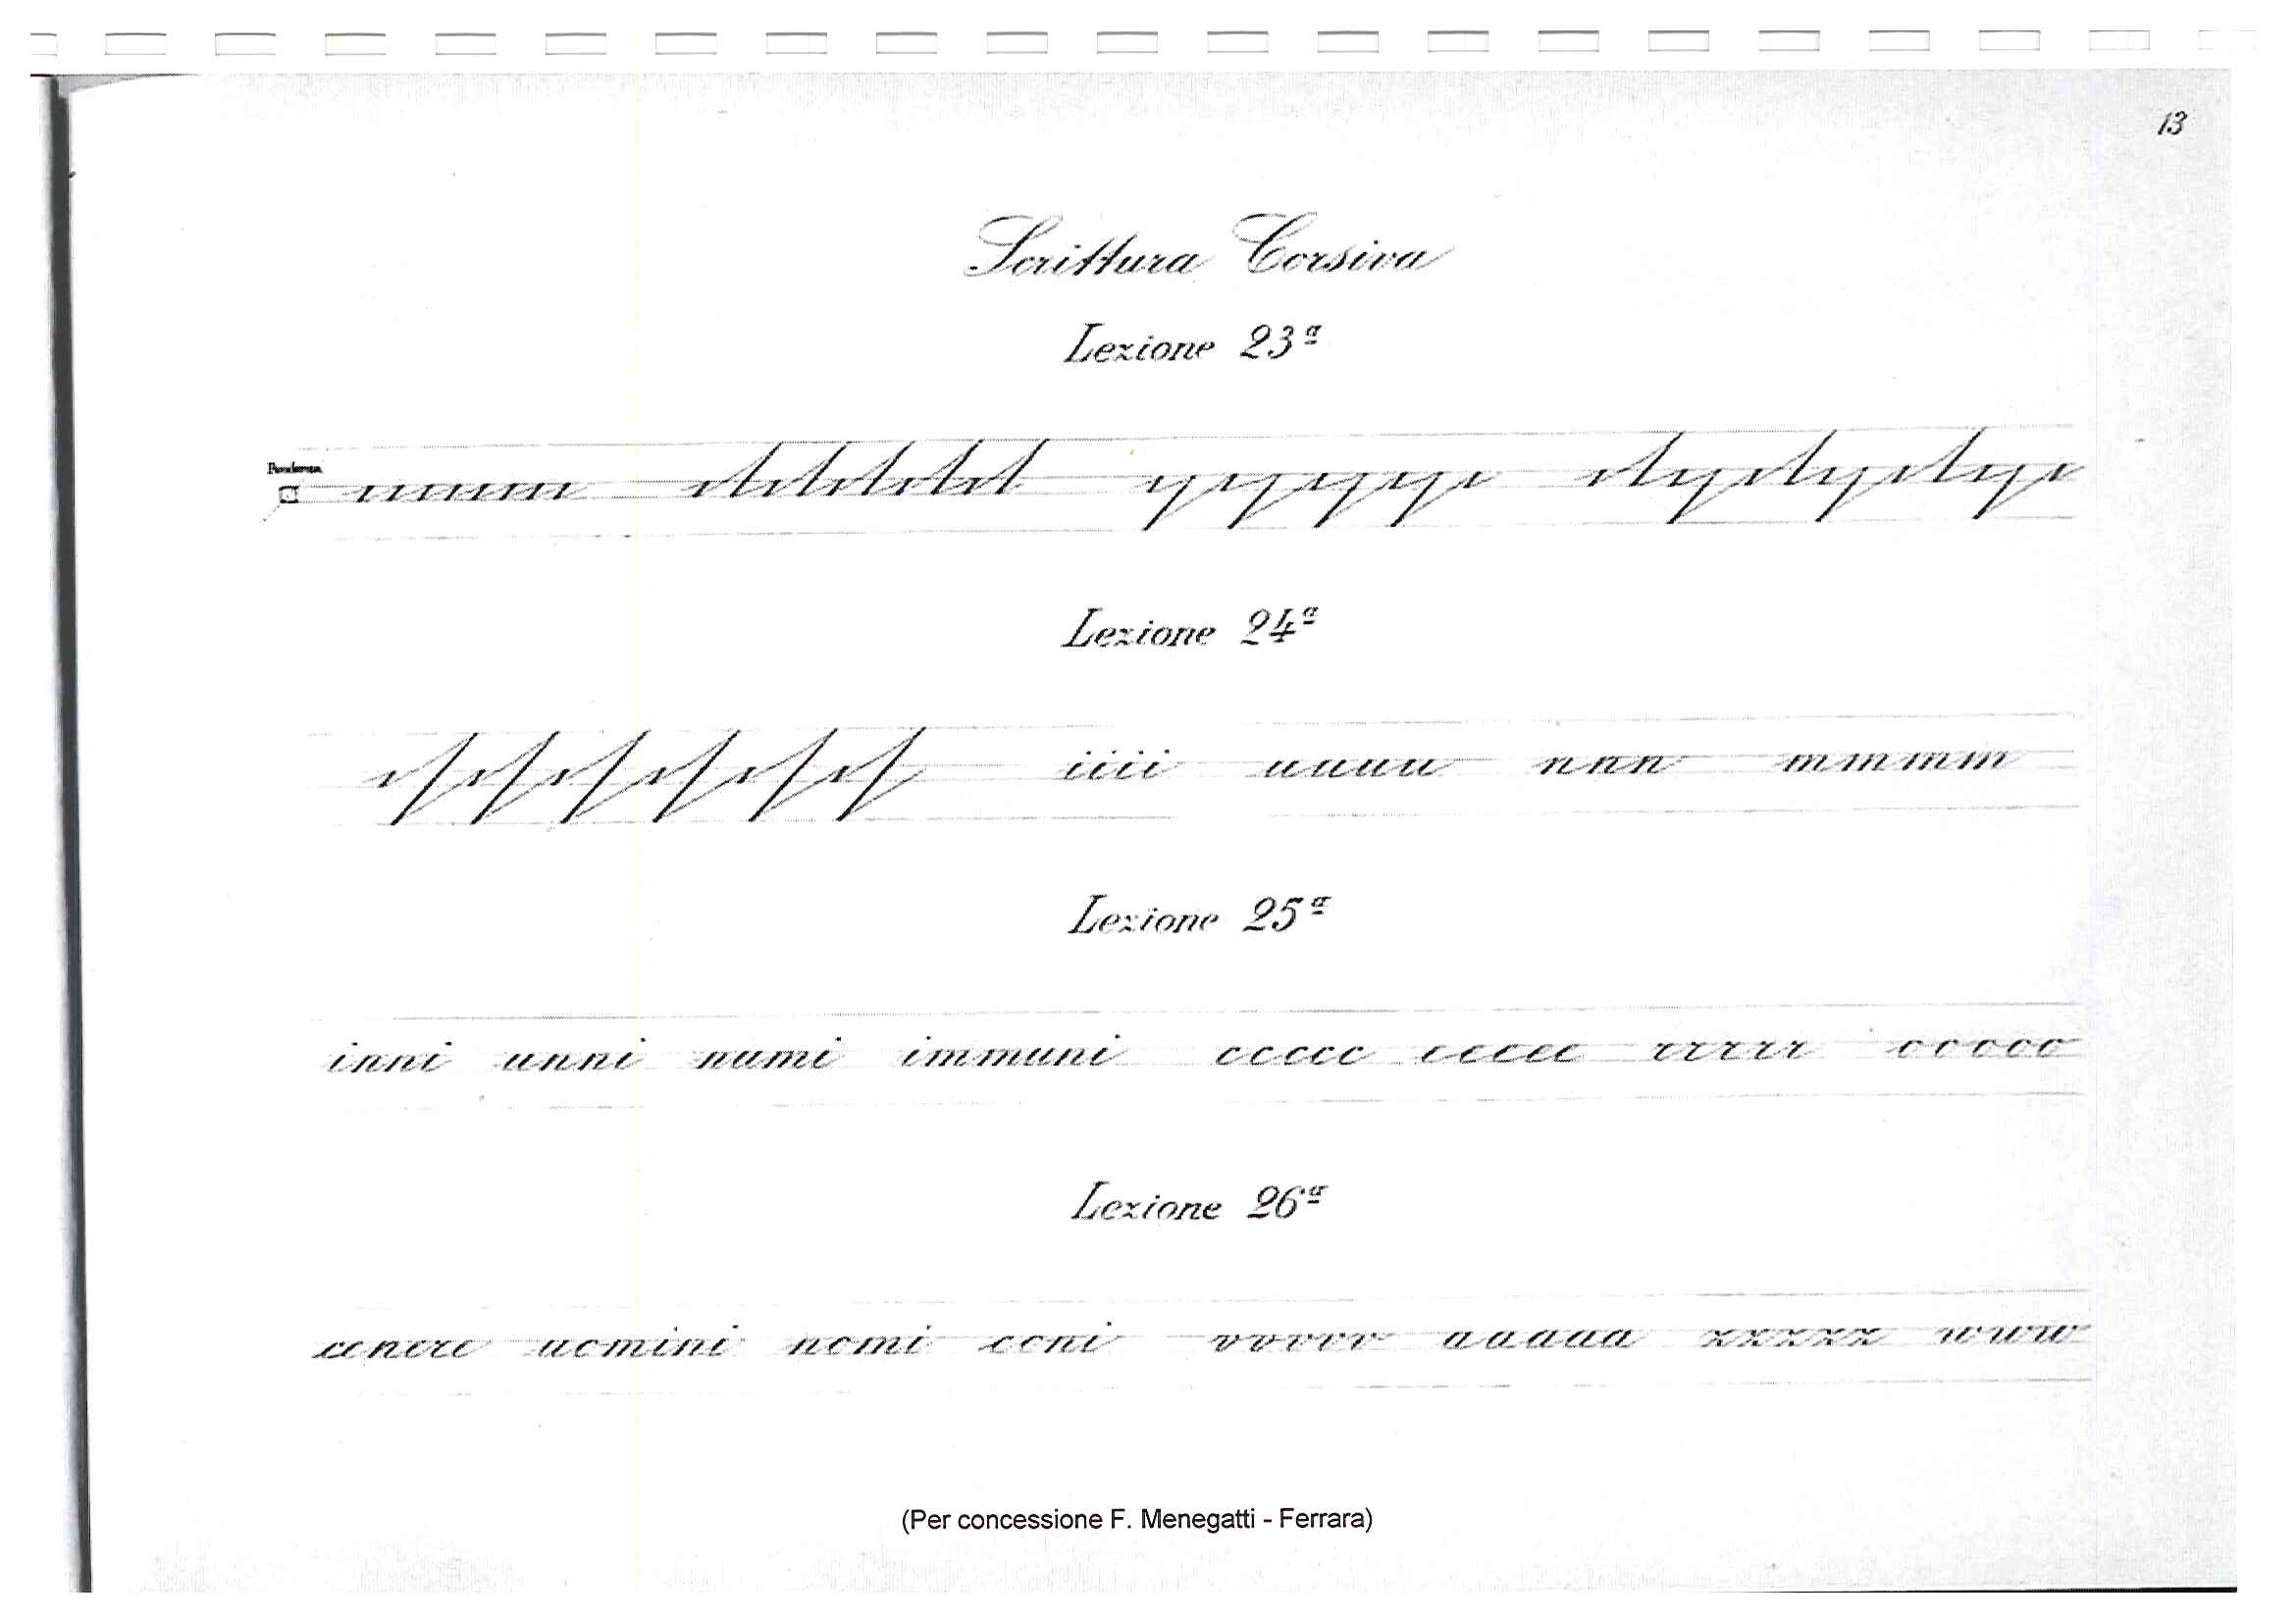 13
Scrittura Corsiva
Lezione 23ª
Pendenza
Lezione 24ª
iiii uuuu nnn mmmm
Lezione 25ª
inni unni numi immuni ccccc eeeee rrrrr ooooo
Lezione 26ª
cenere uomini nomi coni vvvvv aaaaa xxxxx www
(Per concessione F. Menegatti - Ferrara)